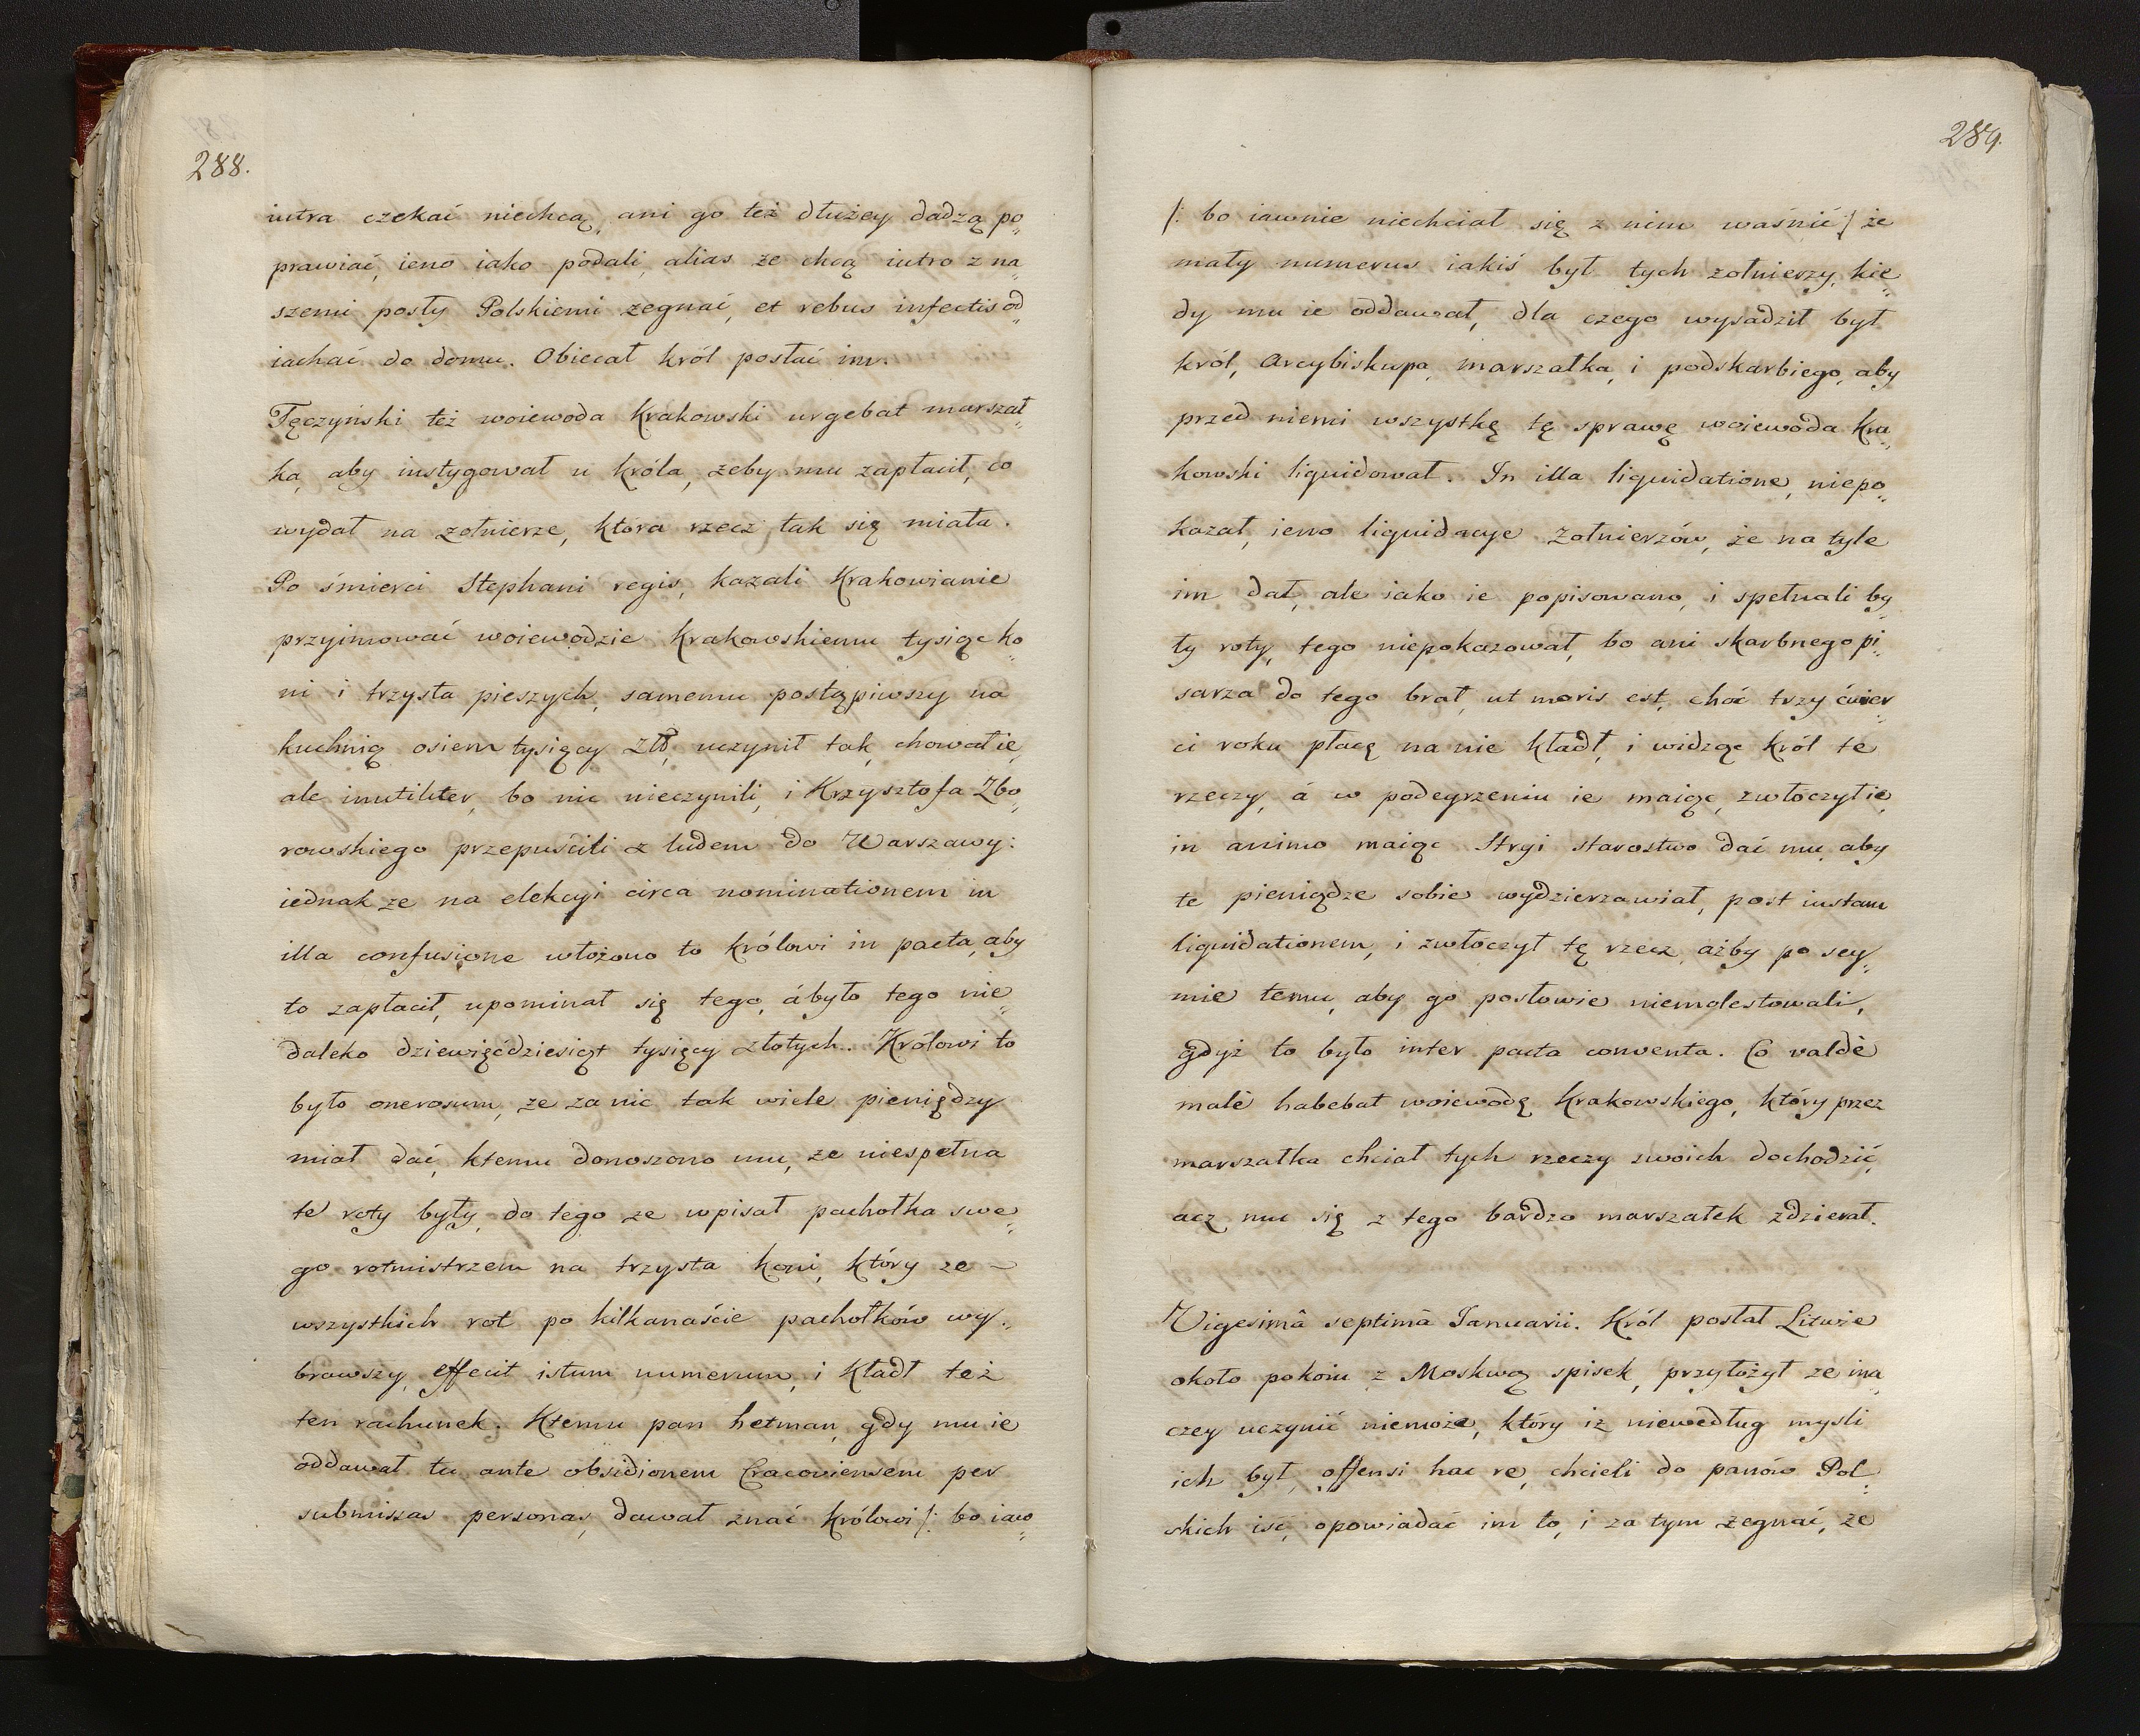 288.
iutra czekać niechcą, ani go też dłużey dadzą po„
prawiać, ieno iako podali, alias że chcą iutro z na„
szemi posły Polskiemi żegnać, et rebus infectis od„
iachać do domu. Obiecał król posłać im.
Tęczyński też woiewoda Krakowski urgebat marszał„
ka, aby instygował u króla, żeby mu zapłacił, co
wydał na żołnierze, która rzecz tak się miała.
Po śmierci Stephani regis, kazali Krakowianie
przyimować woiewodzie Krakowskiemu tysiąc ko„
ni i trzysta pieszych, samemu postąpiwszy na
kuchnią osiem tysięcy zł, uczynił tak, chował ie,
ale inutiliter, bo nic nieczynili, i Krzysztofa Zbo„
rowskiego przepuścili z ludem do Warszawy:
iednak że na elekcyi circa nominationem in
illa confusione włożono to królowi in pacta, aby
to zapłacił, upominał się tego, á było tego nie„
daleko dziewięćdziesiąt tysięcy złotych. Królowi to
było onerosum, że za nic tak wiele pieniędzy
miał dać, ktemu donoszono mu, że niespełna
te roty były, do tego że wpisał pachołka swe„
go rotmistrzem na trzysta koni, który ze –
wszystkich rot po kilkanaście pachołków wy„
brawszy, effecit istum numerum, i kładł też
ten rachunek. Ktemu pan hetman, gdy mu ie
oddawał tu ante obsidionem Cracoviensem per
submissas personas, dawał znać królowi /: bo iaw„
289.
/: bo iawnie niechciał się z nim waśnić :/ że
mały numerus iakiś był tych żołnierzy, kie„
dy mu ie oddawał, dla czego wysadził był
król, Arcybiskupa, marszałka, i podskarbiego, aby
przed niemi wszystkę tę sprawę woiewoda Kra„
kowski liquidował. In illa liquidatione, niepo„
kazał, ieno liquidacye żołnierzów, że na tyle
im dał, ale iako ie popisowano, i spełnali by„
ły roty, tego niepokazował, bo ani skarbnego pi„
sarza do tego brał, ut moris est, choć trzy ćwier„
ci roku płacę na nie kładł, i widząc król te
rzeczy, á w podeyrzeniu ie maiąc, zwłoczył ie,
in animo maiąc Stryi starostwo dać mu, aby
te pieniądze sobie wydzierżawiał, post iustam
liquidationem, i zwłóczył tę rzecz, ażby po sey„
mie temu, aby go posłowie niemolestowali,
gdyż to było inter pacta conventa. Co valdè
malè habebat woiewodę Krakowskiego, który przez
marszałka chciał tych rzeczy swoich dochodzić,
acz mu się z tego bardzo marszałek zdzierał.
Vigesimâ septimâ Ianuarii. Król posłał Litwie
około pokoiu z Moskwą spisek, przyłożył że ina„
czey uczynić niemoże, który iż niewedług myśli
ich był, offensi hac re, chcieli do panów Pol„
skich iść, opowiadać im to, i za tym żegnać, że